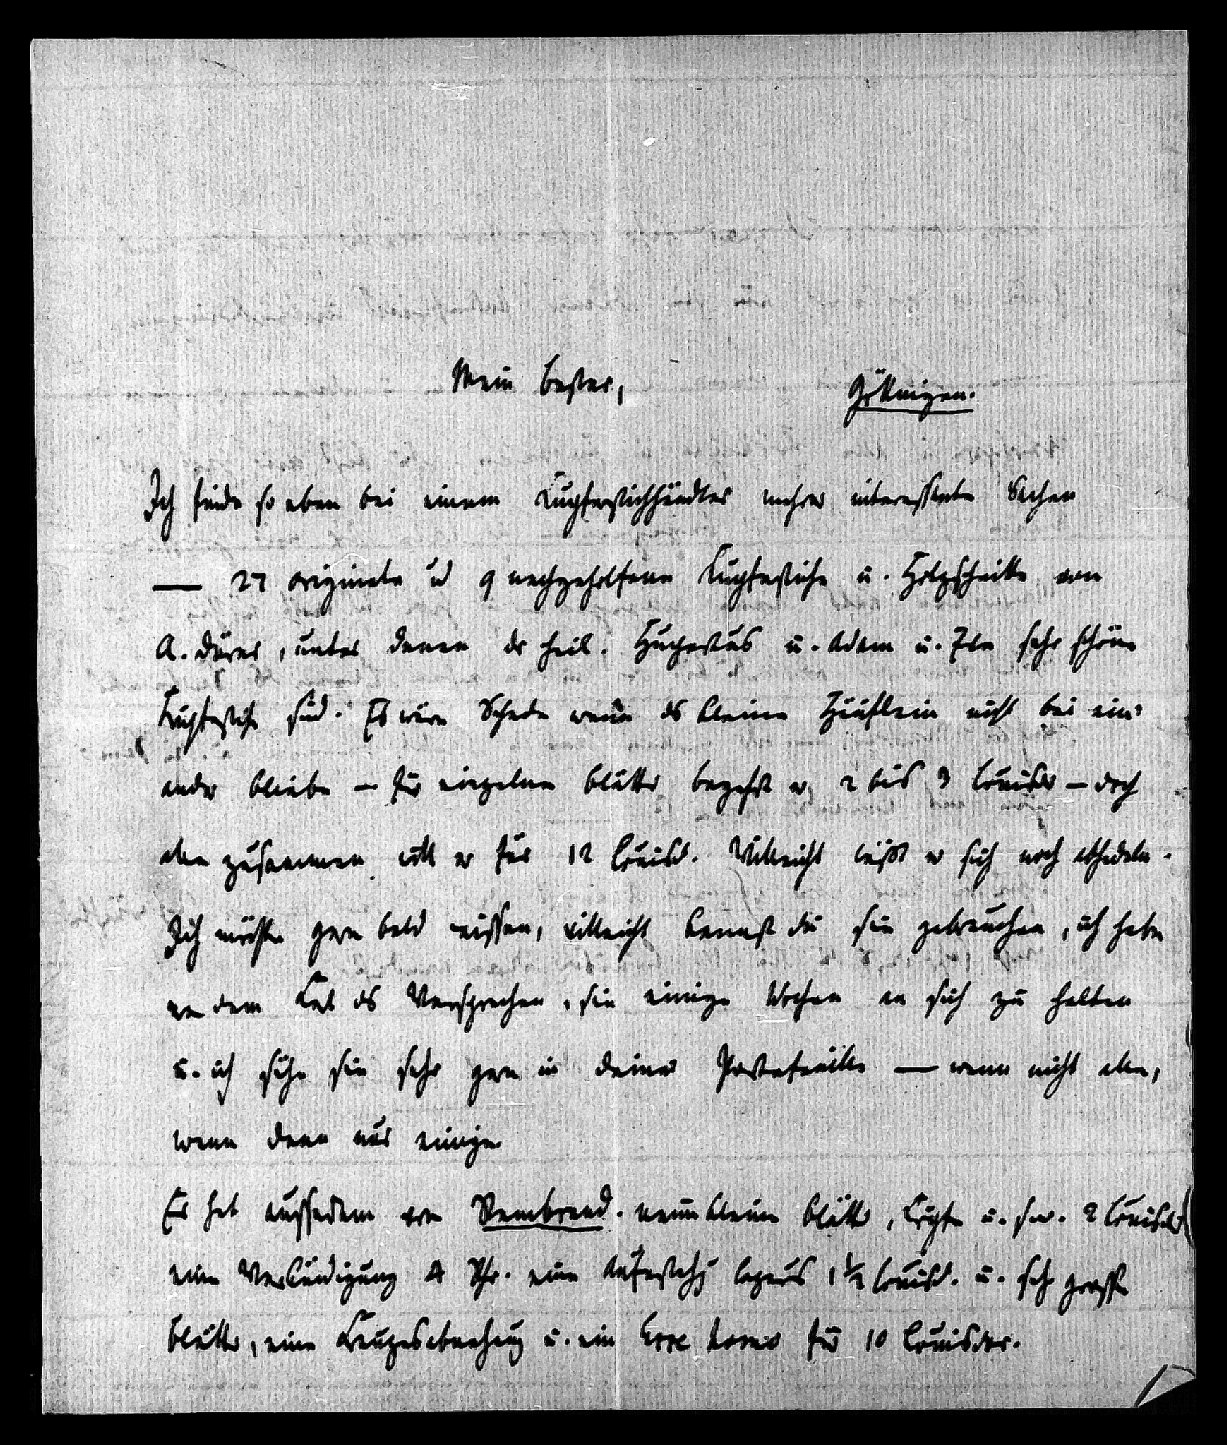 Mein bester,
Göttingen.
Ich finde so eben bei einem Kupferstichhändler mehrer interessante Sachen
— 27 originale und 9 nachgeholfene Kupferstiche u. Holzschnitte von
A. Dürer, unter denen der heil. Hupertus u. Adam u. Eva sehr schöne
Kupferstiche sind. Es wäre Schade wenn das kleine Häuflein nicht bei ein=
ander bliebe — für einzelne blätter begehrt er 2 bis 3 Louisdor — doch
alle zusammen will er für 12 Louisd. Villeicht läßt er sich noch abhandeln.
Ich möchte gern bald wissen, villeicht kannst du sie gebrauchen, ich habe
von dem Kerl das Versprechen, sie einige Wochen an sich zu halten
u. ich sähe sie sehr gern in deiner Portefeuille — wenn nicht alle,
wenn dann nur einige
Er hat aussedem von Rembrand. neun kleine blätter, Köpfe u. s.w. 2 Louisdor
eine Verkündigung 4 Thr. eine Auferstehg Lazarus 1½ Louisd. u. sehr grosse
blätter, eine Kreuzesabnehmg u. ein Ecce homo für 10 Louisdor.